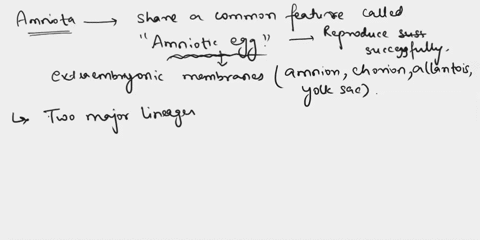 Amniota → share a common feature called
"Amniotic egg" → Reproduce successfully.
extraembryonic membranes (amnion, chorion, allantois, yolk sac).
↳ Two major lineages